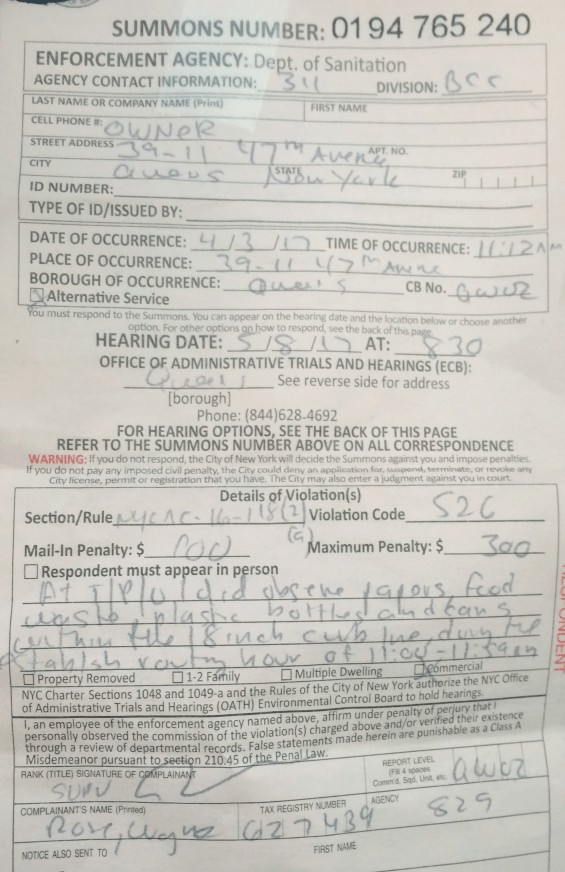 SUMMONS NUMBER: 0194 765 240
ENFORCEMENT AGENCY: Dept. of Sanitation
AGENCY CONTACT INFORMATION: 311 DIVISION: BCC
LAST NAME OR COMPANY NAME (Print) FIRST NAME
CELL PHONE #: OWNER
STREET ADDRESS 39-11 47th Avenue APT. NO.
CITY Queens STATE New York ZIP
ID NUMBER:
TYPE OF ID/ISSUED BY:
DATE OF OCCURRENCE: 4/3/17 TIME OF OCCURRENCE: 11:12 AM
PLACE OF OCCURRENCE: 39-11 47th Avenue
BOROUGH OF OCCURRENCE: Queens CB No. QW02
Alternative Service
You must respond to the Summons. You can appear on the hearing date and the location below or choose another
option. For other options on how to respond, see the back of this page.
HEARING DATE: 5/8/17 AT: 830
OFFICE OF ADMINISTRATIVE TRIALS AND HEARINGS (ECB):
Queens See reverse side for address
[borough]
Phone: (844)628-4692
FOR HEARING OPTIONS, SEE THE BACK OF THIS PAGE
REFER TO THE SUMMONS NUMBER ABOVE ON ALL CORRESPONDENCE
WARNING: If you do not respond, the City of New York will decide the Summons against you and impose penalties.
If you do not pay any imposed civil penalty, the City could deny an application for, suspend, terminate, or revoke any
City license, permit or registration that you have. The City may also enter a judgment against you in court.
Details of Violation(s)
Section/Rule NYCAC-16-118(2) Violation Code S2C
(a)
Mail-In Penalty: $ 100 Maximum Penalty: $ 300
Respondent must appear in person
At T/P/O I did observe papers, food
waste, plastic bottles and cans
within the 18 inch curb line, during the
establish routing hour of 11:00-11:59am
Property Removed 1-2 Family Multiple Dwelling Commercial
NYC Charter Sections 1048 and 1049-a and the Rules of the City of New York authorize the NYC Office
of Administrative Trials and Hearings (OATH) Environmental Control Board to hold hearings.
I, an employee of the enforcement agency named above, affirm under penalty of perjury that I
personally observed the commission of the violation(s) charged above and/or verified their existence
through a review of departmental records. False statements made herein are punishable as a Class A
Misdemeanor pursuant to section 210.45 of the Penal Law.
RANK (TITLE) SIGNATURE OF COMPLAINANT REPORT LEVEL
(Fill 4 spaces
Comm'd. Sqd. Unit, etc. QW02
SUPV
COMPLAINANT'S NAME (Printed) TAX REGISTRY NUMBER AGENCY
Rose, Wayne 627439 829
NOTICE ALSO SENT TO FIRST NAME
RESPONDENT